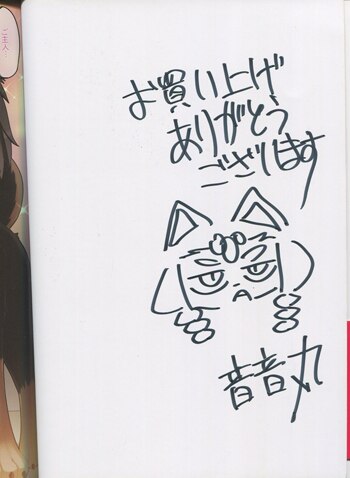 ご主人…
お買い上げ
ありがとう
ございます
音音丸